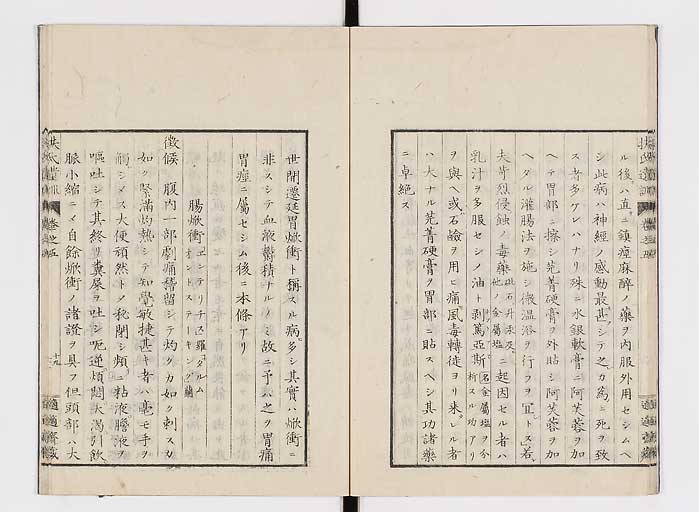 ル後ハ直ニ鎮痙麻醉ノ藥ヲ内服外用セシムヘ
シ此病ハ神経ノ感動最甚シテ之カ為ニ死ヲ致
ス者多アレハナリ殊ニ水銀軟膏ニ阿芙蓉ヲ加
ヘテ胃部ニ擦シ芫菁硬膏ヲ外貼シ阿芙蓉ヲ加
ヘタル灌腸法ヲ施シ微温浴ヲ行フヲ宜トス若
夫苛烈侵蝕ノ毒藥砒石升汞及他ノ金属塩ニ起因セル者ハ
乳汁ヲ多服セシノ油ト剥篤亞斯名金属塩ヲ分析スル功アリ
ヲ與ヘ或石鹼ヲ用ヒ痛風毒轉徙ヨリ来レル者
ハ大ナル芫菁硬膏ヲ胃部ニ貼スヘシ其功諸藥
ニ卓絶ス
巻之五
適適齋藏
世間遷延胃焮衝ト稱スル病多シ其實ハ焮衝ニ
非スシテ血液欝積ナルノミ故ニ予ハ之ヲ胃痛
胃痙ニ屬セシム後ニ本條アリ
腸焮衝
徴候 腹内一部劇痛稽留シテ灼クカ如ク刺スカ
如ク緊滿灼熱シテ知覺敏捷甚キ者ハ毫モ手ヲ
觸シメス大便頑然トメ秘閉シ頻ニ粘液膽液ヲ
嘔吐シテ其終リ糞尿ヲ吐シ呃逆煩悶大渇引飲
脈小縮ニメ自餘焮衝ノ諸證ヲ具フ但頭部ハ大
扶氏遺訓
巻之五
十九
適適齋藏